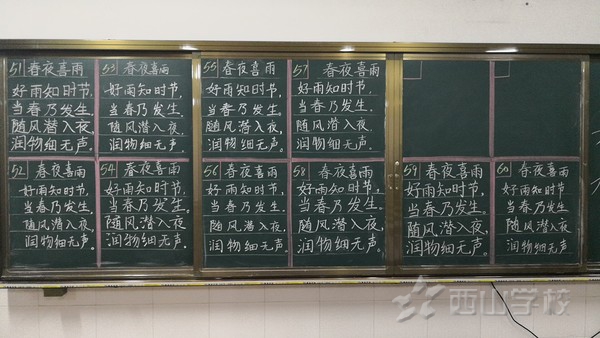 51 春夜喜雨
好雨知时节,
当春乃发生。
随风潜入夜,
润物细无声。
53 春夜喜雨
好雨知时节,
当春乃发生。
随风潜入夜,
润物细无声。
55 春夜喜雨
好雨知时节,
当春乃发生。
随风潜入夜,
润物细无声。
57 春夜喜雨
好雨知时节,
当春乃发生。
随风潜入夜,
润物细无声。
52 春夜喜雨
好雨知时节,
当春乃发生。
随风潜入夜,
润物细无声。
54 春夜喜雨
好雨知时节,
当春乃发生。
随风潜入夜,
润物细无声。
56 春夜喜雨
好雨知时节,
当春乃发生。
随风潜入夜,
润物细无声。
58 春夜喜雨
好雨知时节,
当春乃发生。
随风潜入夜,
润物细无声。
59 春夜喜雨
好雨知时节,
当春乃发生。
随风潜入夜,
润物细无声。
60 春夜喜雨
好雨知时节,
当春乃发生。
随风潜入夜,
润物细无声。
西山学校